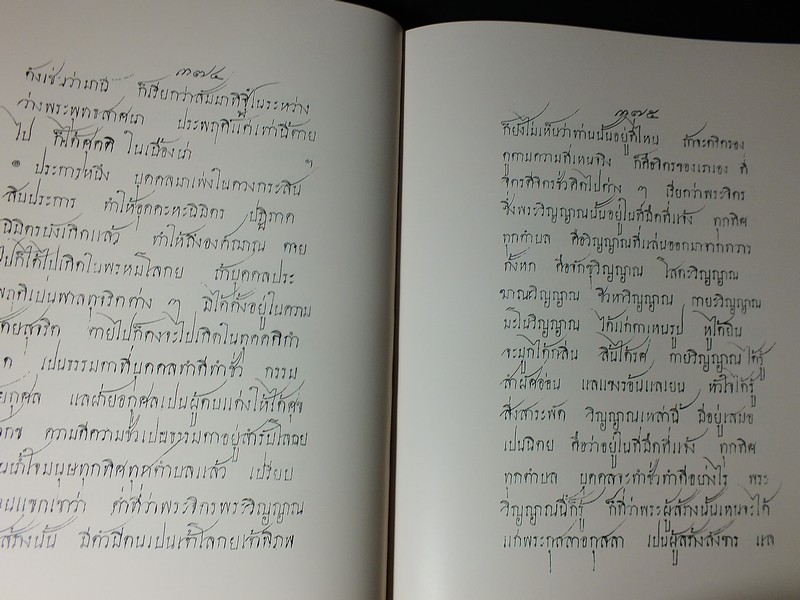 ๓๗๔
ดังเช่นว่ามานี้ ก็เรียกว่าสัมมาทิฐิในระหว่าง
ว่างพระพุทธสาศนา ประพฤติแต่เท่านี้ตาย
ไป ก็ได้ศุคติ ในเบื้องน่า ฯ
๏ ประการหนึ่ง บุคคลมาเพ่งในดวงกระสิน
สิบประการ ทำให้อุคคะหะนิมิตร ปฏิภาค
นิมิตรบังเกิดแล้ว ทำให้ถึงองค์ฌาณ ตาย
ไปก็ได้ไปเกิดในพรหมโลกย ถ้าบุคคลประ
พฤติเปนพาลทุจริตต่าง ๆ มิได้ตั้งอยู่ในความ
สุจริต ตายไปก็คงจะไปเกิดในทุคคติกำ
เปนธรรมดาที่บุคคลทำดีทำชั่ว กรรม
กุศล แลฝ่ายอกุศลเปนผู้ตบแต่งให้ได้ศุข
ความดีความชั่วเปนธรรมดาอยู่สำรับโลกย
น้ำใจมนุษทุกทิศทุกตำบลแล้ว เปรียบ
แขกเขาว่า คำที่ว่าพระจิตรพระวิญญาณ
สร้างนั้น มีตัวมีตนเปนเจ้าโลกยเจ้าพิภพ
๓๗๕
ก็ยังไม่เห็นว่าท่านนั้นอยู่ที่ไหน ถ้าจะตริตรอง
ดูตามความที่เหนจริง ก็คือจิตรของเราเอง ที่
จิตรดีจิตรชั่วคิดไปต่าง ๆ เรียกว่าพระจิตร
ซึ่งพระวิญญาณนั้นอยู่ในที่มืดที่แจ้ง ทุกทิศ
ทุกตำบล คือวิญญาณที่แล่นออกมาจากทวาร
ทั้งหก คือจักขุวิญญาณ โสตะวิญญาณ
ฆานะวิญญาณ ชิวหาวิญญาณ กายะวิญญาณ
มะโนวิญญาณ ได้แก่ตาเหนรูป หูได้ยิน
จะมูกได้กลิ่น ลิ้นได้รศ กายวิญญาณได้รู้
สำผัศอ่อน แลแขงร้อนแลเยน หัวใจได้รู้
สิ่งสาระพัด วิญญาณเหล่านี้ มีอยู่เสมอ
เปนนิตย คือว่าอยู่ในที่มืดที่แจ้ง ทุกทิศ
ทุกตำบล บุคคลจะทำชั่วทำดีอย่างไร พระ
วิญญาณนี้ก็รู้ ก็ที่ว่าพระผู้สร้างนั้นเหนจะได้
แก่พระกุสลาอกุสลา เปนผู้สร้างสังขาร แล